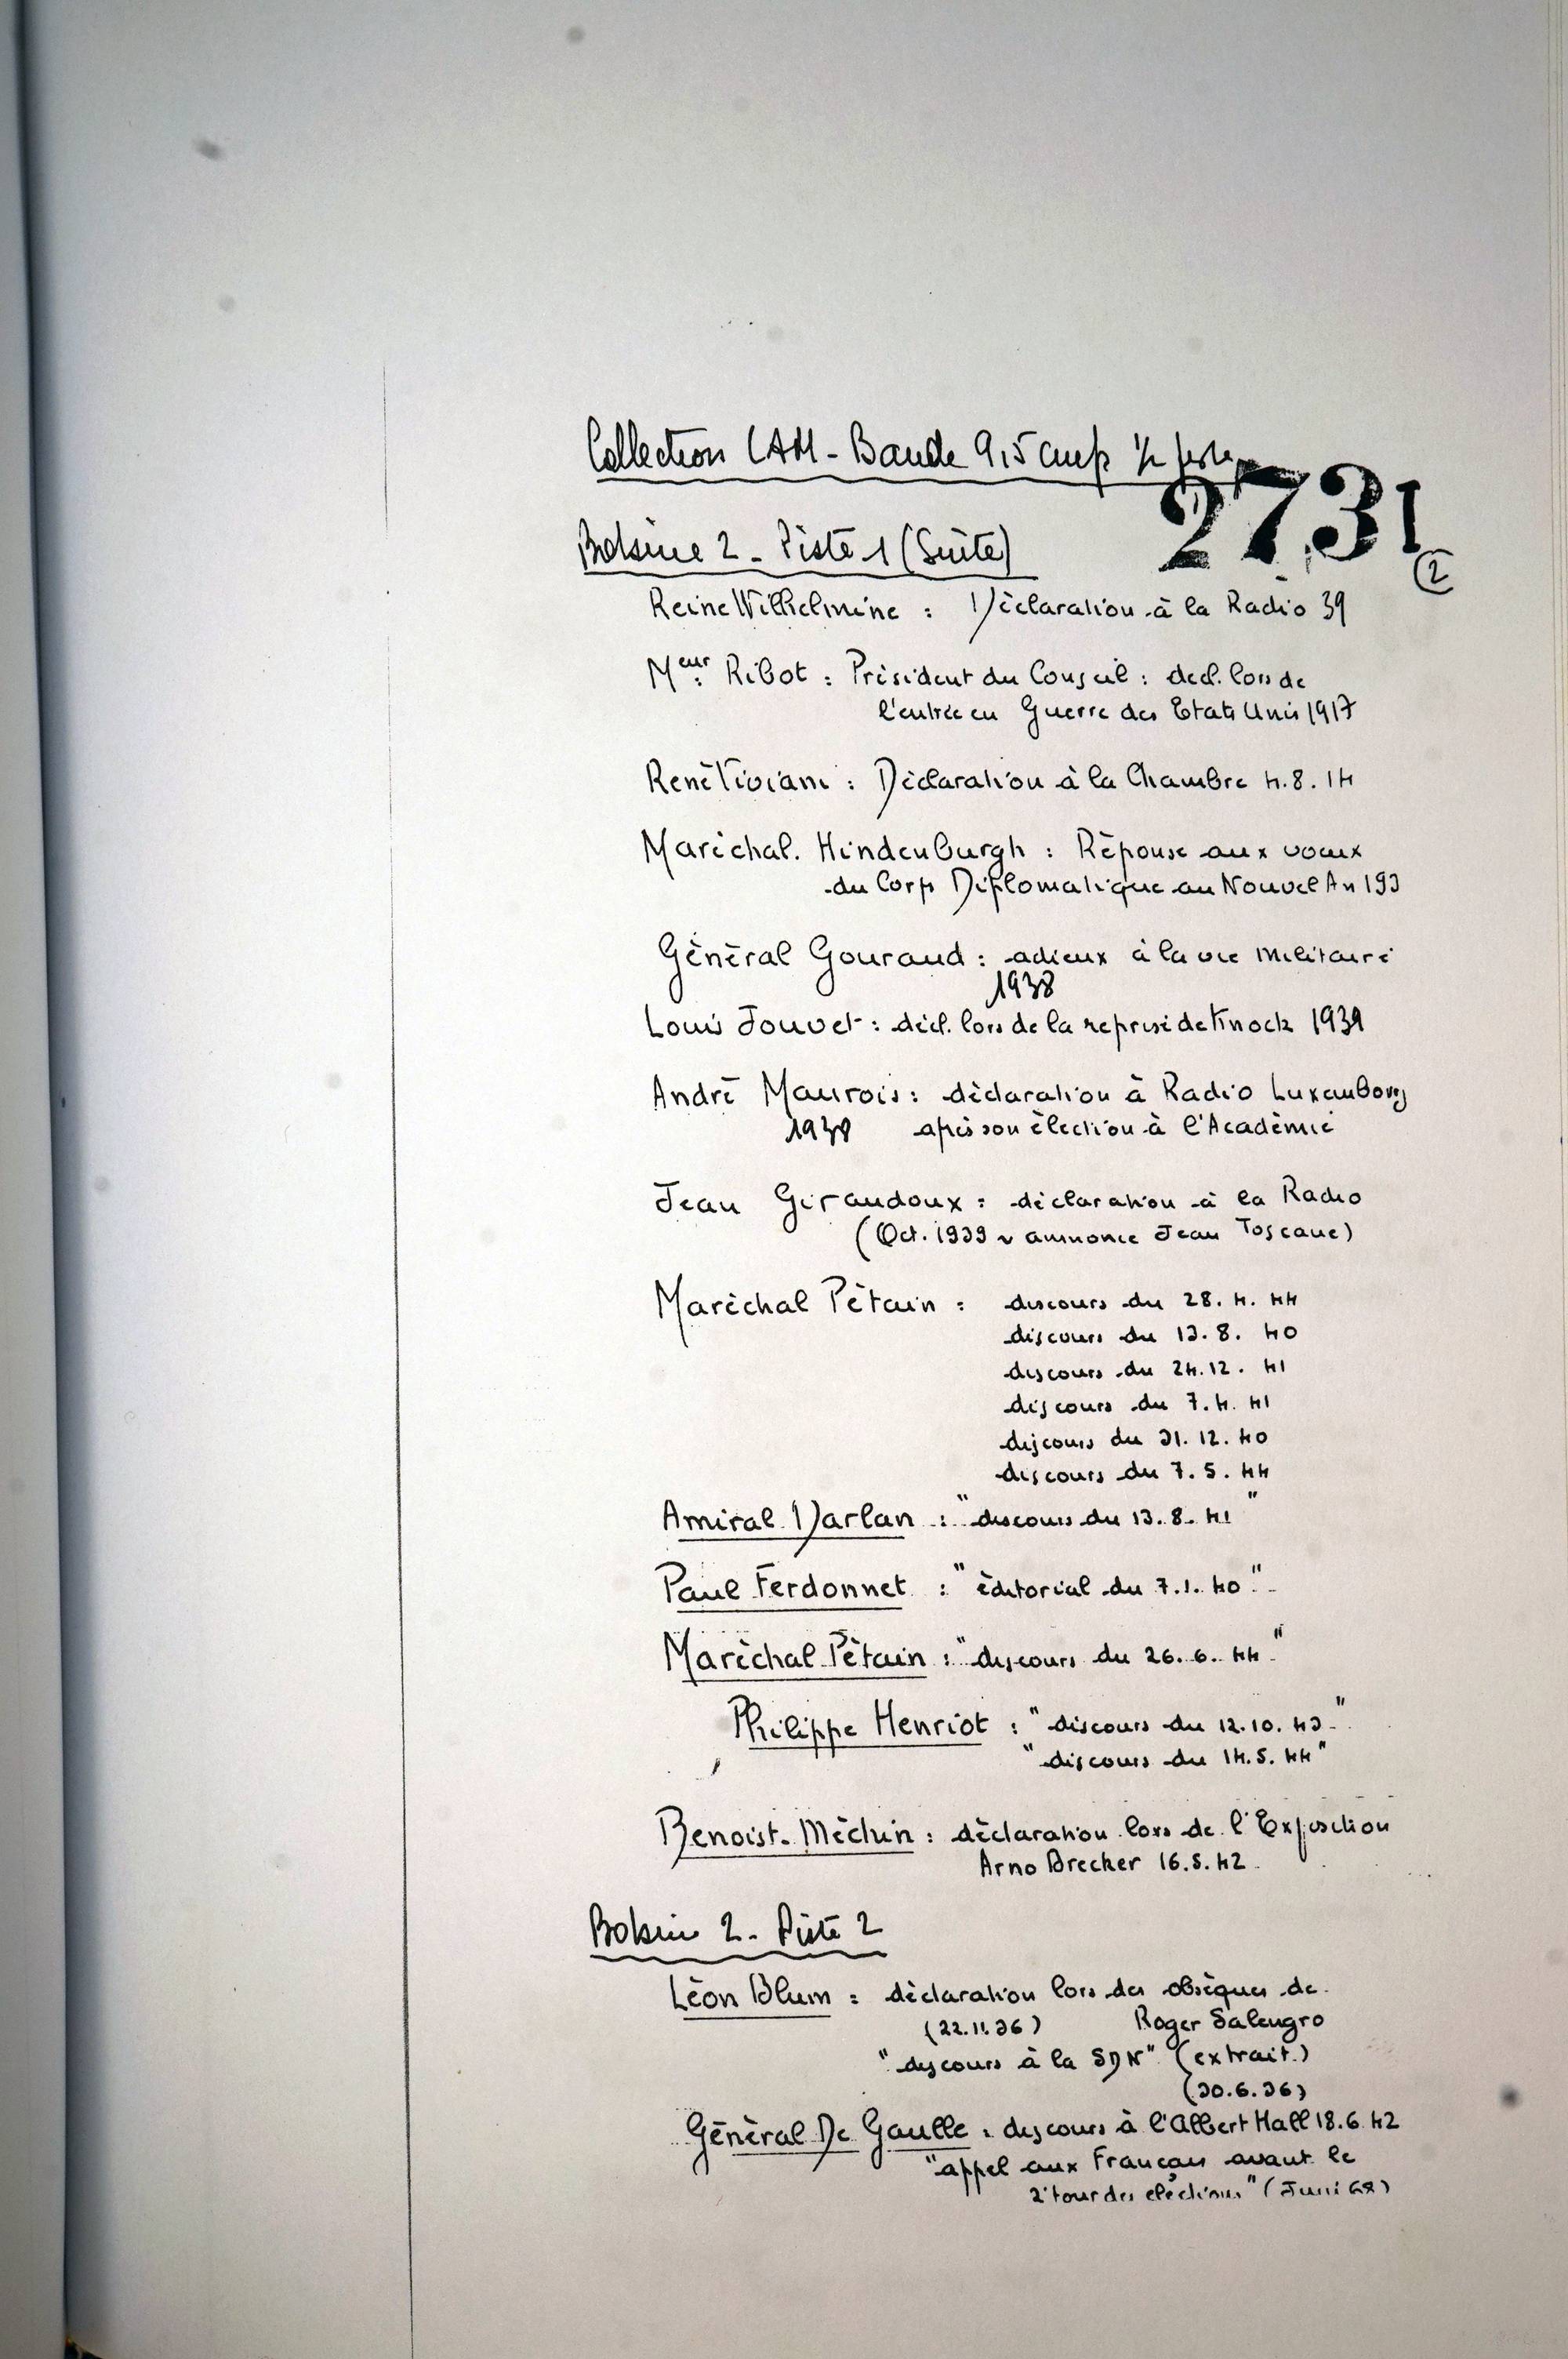 Collection LAM - Bande 9,5 cm/s 1/2 piste
2731
(2)
Bobine 2 - Piste 1 (Suite)
Reine Wilhelmine : Déclaration à la Radio 39
Meur Ribot : Président du Conseil : decl. lors de
l'entrée en Guerre des Etats Unis 1917
René Viviani : Déclaration à la Chambre 4.8.14
Maréchal. Hindenburgh : Réponse aux voeux
du Corps Diplomatique au Nouvel An 193
Général Gouraud : adieux à la vie militaire
1938
Louis Jouvet : décl. lors de la reprise de Knock 1939
André Maurois : déclaration à Radio Luxembourg
1938 après son élection à l'Académie
Jean Giraudoux : déclaration à la Radio
(Oct. 1939 annonce Jean Toscane)
Maréchal Pétain : discours du 28. 4. 44
discours du 13. 8. 40
discours du 24. 12. 41
discours du 7. 4. 41
discours du 31. 12. 40
discours du 7. 5. 44
Amiral Darlan : "discours du 13. 8. 41"
Paul Ferdonnet : "éditorial du 7. 1. 40"
Maréchal Pétain : "discours du 26. 6. 44"
Philippe Henriot : "discours du 12. 10. 43"
"discours du 14. 5. 44"
Benoist-Méchin : déclaration lors de l'Exposition
Arno Brecker 16. 5. 42
Bobine 2 - Piste 2
Léon Blum : déclaration lors des obsèques de
(22.11.36) Roger Salengro
"discours à la SDN" (extrait)
(30.6.36)
Général De Gaulle : discours à l'Albert Hall 18.6.42
"appel aux Français avant le
2e tour des élections" (Juin 68)